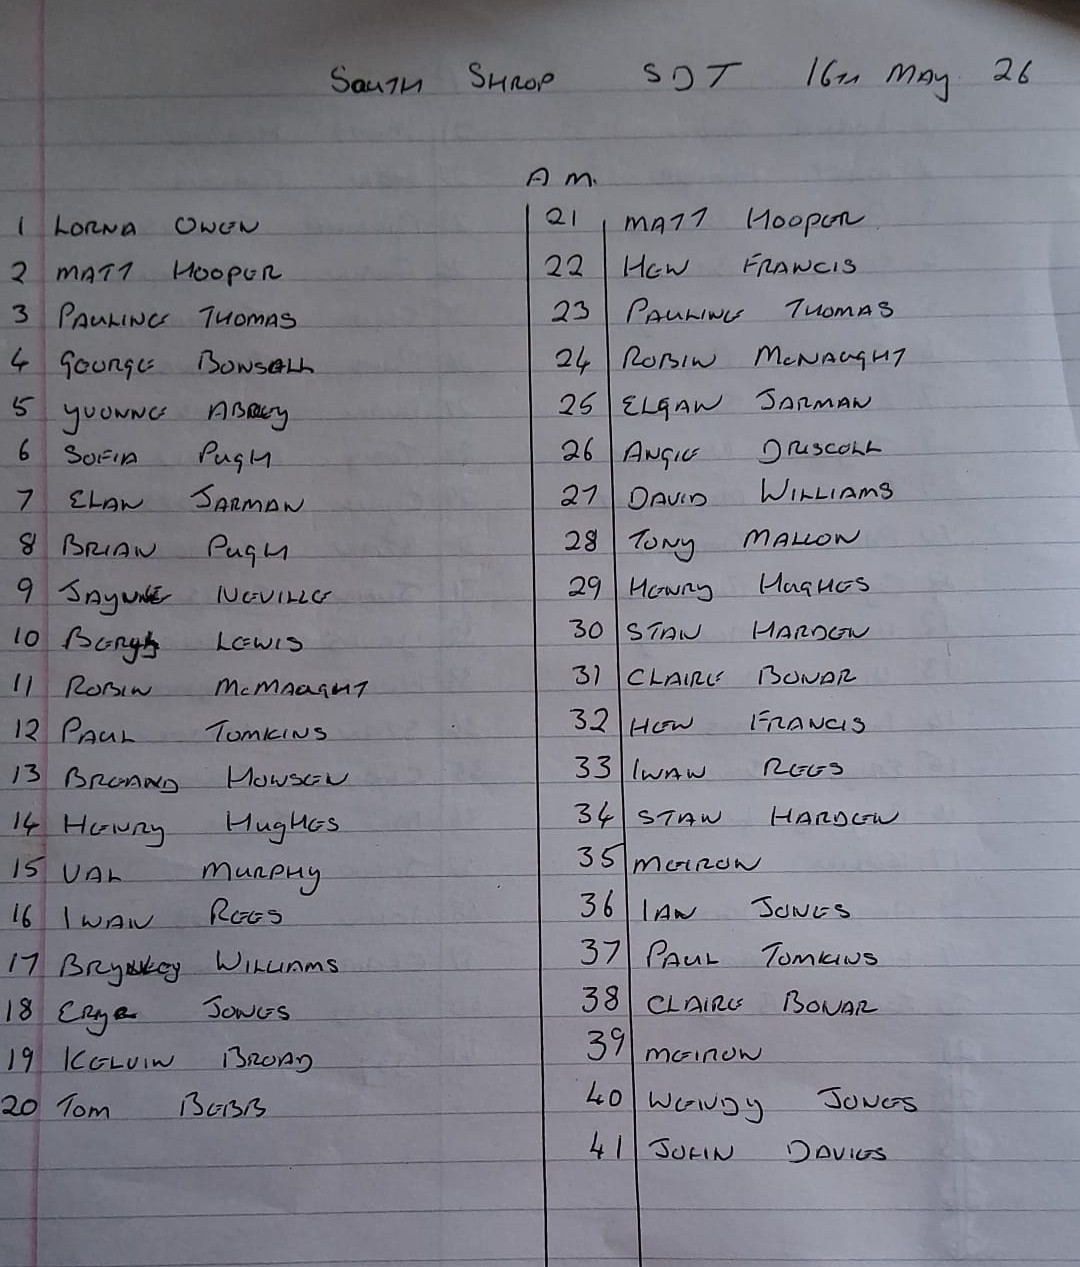 SOUTH SHROP SDT 16TH MAY 26
A M.
1 LORNA OWEN
2 MATT HOOPER
3 PAULINE THOMAS
4 GEORGE BONSALL
5 YVONNE ABREY
6 SOFIA PUGH
7 ELAN JARMAN
8 BRIAN PUGH
9 JAYNNE NEVILLE
10 LEWIS
11 ROBIN MCMAUGHT
12 PAUL TOMKINS
13 HOWSEN
14 HENRY HUGHES
15 VAL MURPHY
16 IWAN REES
17 WILLIAMS
18 JONES
19 KELVIN BROAD
20 TOM BEBB
21 MATT HOOPER
22 HEW FRANCIS
23 PAULINE THOMAS
24 ROBIN MCNAUGHT
25 ELGAN JARMAN
26 ANGIE DRISCOLL
27 DAVID WILLIAMS
28 TONY MALLON
29 HENRY HUGHES
30 STAN HARDEN
31 CLAIRE BONAR
32 HEW FRANCIS
33 IWAN REES
34 STAN HARDEN
35 MEIRON
36 IAN JONES
37 PAUL TOMKINS
38 CLAIRE BONAR
39 MEIRON
40 WENDY JONES
41 JOHN DAVIES